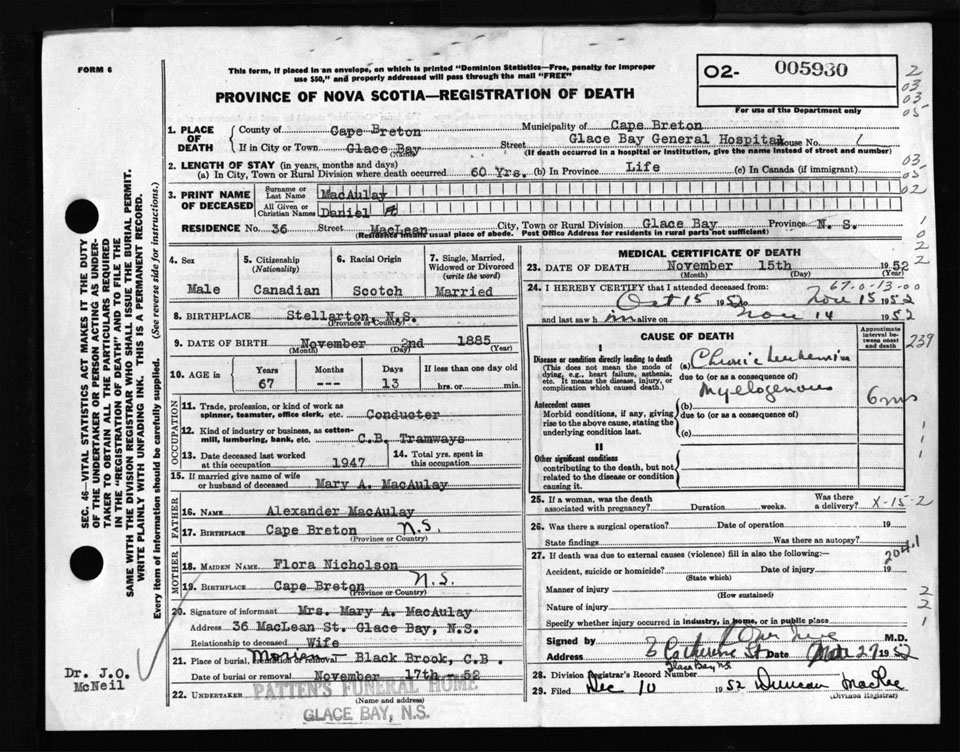 FORM 6
This form, if placed in an envelope, on which is printed "Dominion Statistics—Free, penalty for improper
use $50," and properly addressed will pass through the mail "FREE"
O2- 005930
For use of the Department only
PROVINCE OF NOVA SCOTIA—REGISTRATION OF DEATH
1. PLACE OF DEATH
County of Cape Breton Municipality of Cape Breton
If in City or Town Glace Bay Street Glace Bay General Hospital House No.
(Name) (If death occurred in a hospital or institution, give the name instead of street and number)
2. LENGTH OF STAY (in years, months and days)
(a) In City, Town or Rural Division where death occurred 60 Yrs. (b) In Province Life (c) In Canada (if immigrant)
3. PRINT NAME OF DECEASED
Surname or Last Name MacAulay
All Given or Christian Names Daniel
RESIDENCE No. 36 Street MacLean City, Town or Rural Division Glace Bay Province N. S.
(Residence means usual place of abode. Post Office Address for residents in rural parts not sufficient)
4. Sex Male
5. Citizenship (Nationality) Canadian
6. Racial Origin Scotch
7. Single, Married, Widowed or Divorced (write the word) Married
8. BIRTHPLACE Stellarton, N.S.
(Province or Country)
9. DATE OF BIRTH November 2nd 1885
(Month) (Day) (Year)
10. AGE in Years Months Days If less than one day old
67 --- 13 hrs. or min.
OCCUPATION
11. Trade, profession, or kind of work as
spinner, teamster, office clerk, etc. Conducter
12. Kind of industry or business, as cotton-
mill, lumbering, bank, etc. C.B. Tramways
13. Date deceased last worked
at this occupation 1947
14. Total yrs. spent in
this occupation
15. If married give name of wife
or husband of deceased Mary A. MacAulay
FATHER
16. NAME Alexander MacAulay
17. BIRTHPLACE Cape Breton N.S.
(Province or Country)
MOTHER
18. MAIDEN NAME Flora Nicholson
19. BIRTHPLACE Cape Breton N.S.
(Province or Country)
20. Signature of informant Mrs. Mary A. MacAulay
Address 36 MacLean St. Glace Bay, N.S.
Relationship to deceased Wife
21. Place of burial, cremation or removal Black Brook, C.B.
Date of burial or removal November 17th - 52
22. UNDERTAKER PATTEN'S FUNERAL HOME
(Name and address)
GLACE BAY, N.S.
MEDICAL CERTIFICATE OF DEATH
23. DATE OF DEATH November 15th 1952
(Month) (Day) (Year)
24. I HEREBY CERTIFY that I attended deceased from:
67-0-13-00
Oct 15 1952 to Nov 15 1952
and last saw him alive on Nov 14 1952
CAUSE OF DEATH
Approximate interval between onset and death
I
Disease or condition directly leading to death
(This does not mean the mode of
dying, e.g., heart failure, asthenia,
etc. It means the disease, injury, or
complication which caused death.)
(a) Chronic Leukemia
due to (or as a consequence of)
Myelogenous
6 mos
Antecedent causes
Morbid conditions, if any, giving
rise to the above cause, stating the
underlying condition last.
(b)
due to (or as a consequence of)
(c)
II
Other significant conditions
contributing to the death, but not
related to the disease or condition
causing it.
25. If a woman, was the death
associated with pregnancy? Duration weeks. Was there a delivery? X-15-2
26. Was there a surgical operation? Date of operation 19
State findings Was there an autopsy?
204.1
27. If death was due to external causes (violence) fill in also the following:—
Accident, suicide or homicide? Date of injury 19
(State which)
Manner of injury
(How sustained)
Nature of injury
Specify whether injury occurred in industry, in home, or in public place
Signed by M.D.
Address 3 Catherine St Date 27 1952
Glace Bay NS
28. Division Registrar's Record Number
29. Filed Dec 10 1952 Duncan MacRae
(Division Registrar)
SEC. 46—VITAL STATISTICS ACT MAKES IT THE DUTY
OF THE UNDERTAKER OR PERSON ACTING AS UNDER-
TAKER TO OBTAIN ALL THE PARTICULARS REQUIRED
IN THE "REGISTRATION OF DEATH" AND TO FILE THE
SAME WITH THE DIVISION REGISTRAR WHO SHALL ISSUE THE BURIAL PERMIT.
WRITE PLAINLY WITH UNFADING INK. THIS IS A PERMANENT RECORD.
Every item of information should be carefully supplied. (See reverse side for instructions.)
Dr. J.O.
McNeil
2
03
03
05
03
05
02
1
0
2
2
239
1
1
1
2
2
1